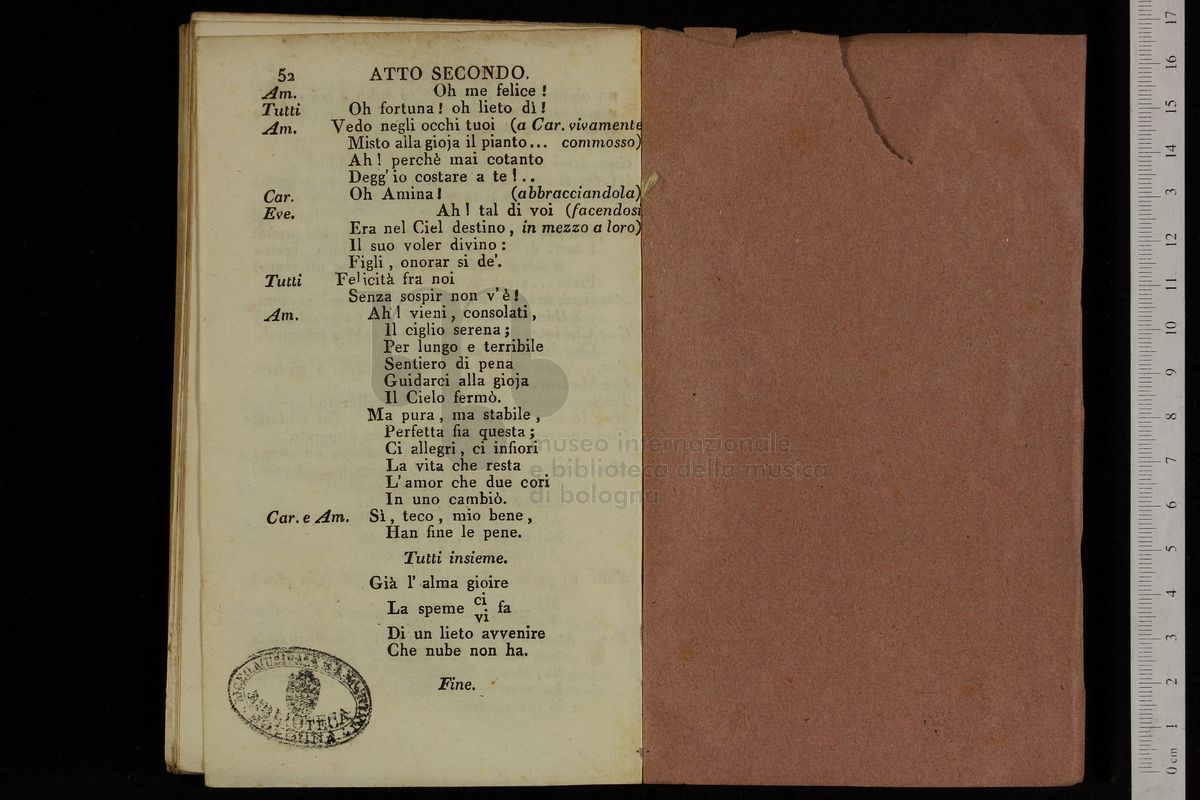 52 ATTO SECONDO.
Am. Oh me felice !
Tutti Oh fortuna ! oh lieto dì !
Am. Vedo negli occhi tuoi (a Car. vivamente
Misto alla gioja il pianto... commosso)
Ah ! perchè mai cotanto
Degg' io costare a te ! ..
Car. Oh Amina ! (abbracciandola)
Eve. Ah ! tal di voi (facendosi
Era nel Ciel destino , in mezzo a loro)
Il suo voler divino :
Figli , onorar si de'.
Tutti Felicità fra noi
Senza sospir non v' è !
Am. Ah ! vieni , consolati ,
Il ciglio serena ;
Per lungo e terribile
Sentiero di pena
Guidarci alla gioja
Il Cielo fermò.
Ma pura , ma stabile ,
Perfetta fia questa ;
Ci allegri , ci infiori
La vita che resta
L' amor che due cori
In uno cambiò.
Car. e Am. Sì , teco , mio bene ,
Han fine le pene.
Tutti insieme.
Già l' alma gioire
La speme ci fa
vi
Di un lieto avvenire
Che nube non ha.
Fine.
BIBLIOTECA
BOLOGNA
museo internazionale
e biblioteca della musica
di bologna
0 cm 1 2 3 4 5 6 7 8 9 10 11 12 13 14 15 16 17